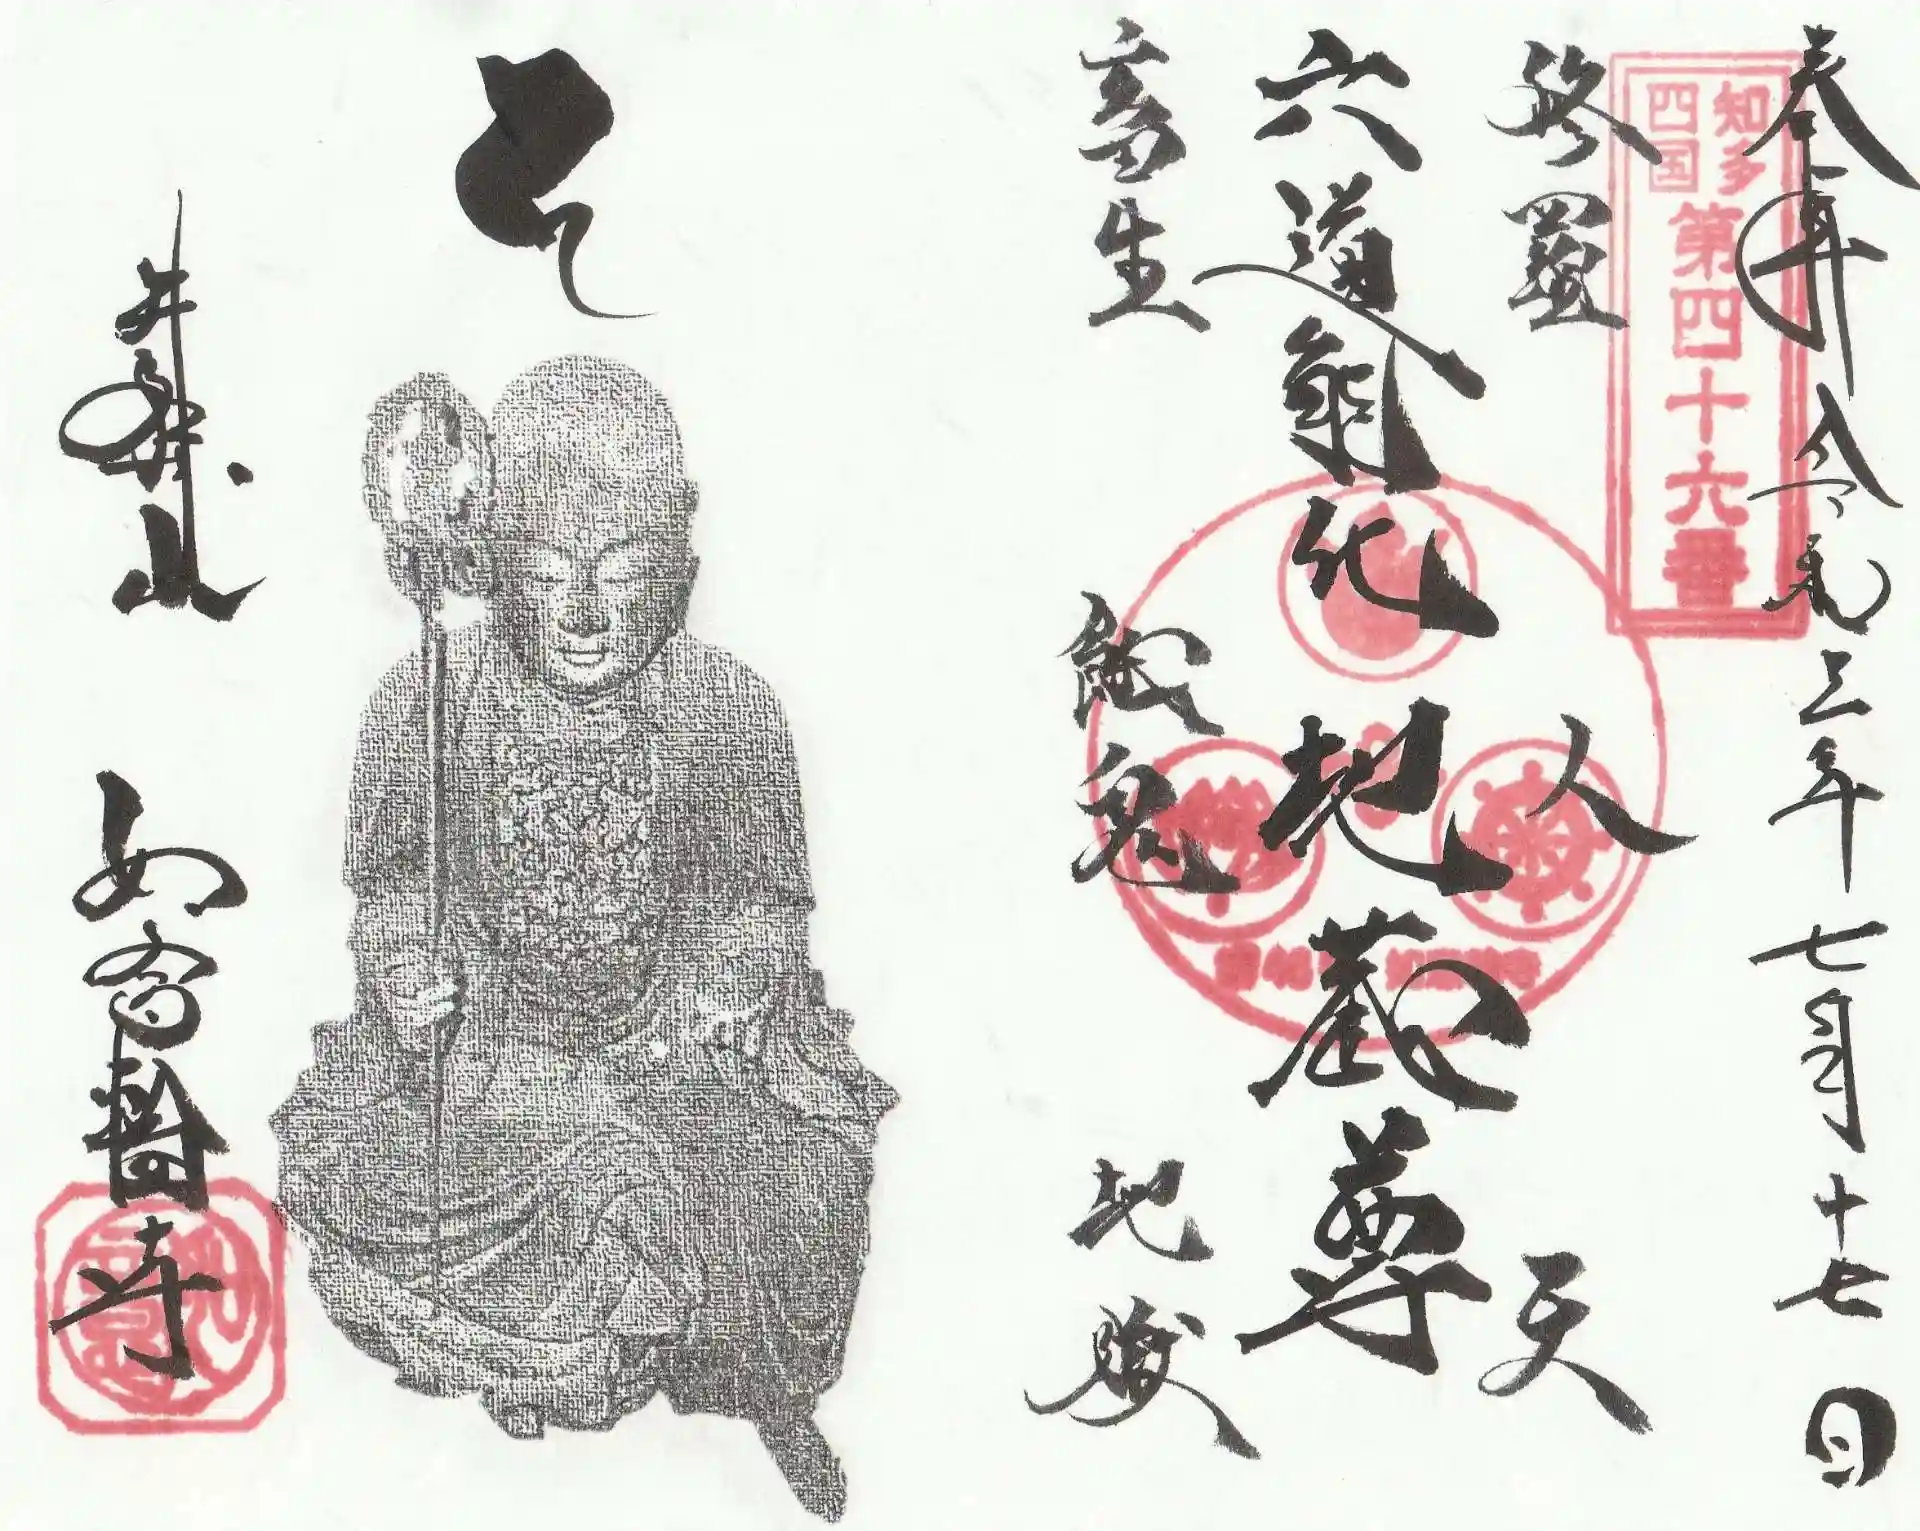 奉拝 令和三年七月十七日
知多
四国
第四十六番
修羅 人 天
六道能化地蔵尊
畜生 餓鬼 地獄
井際山 如意輪寺